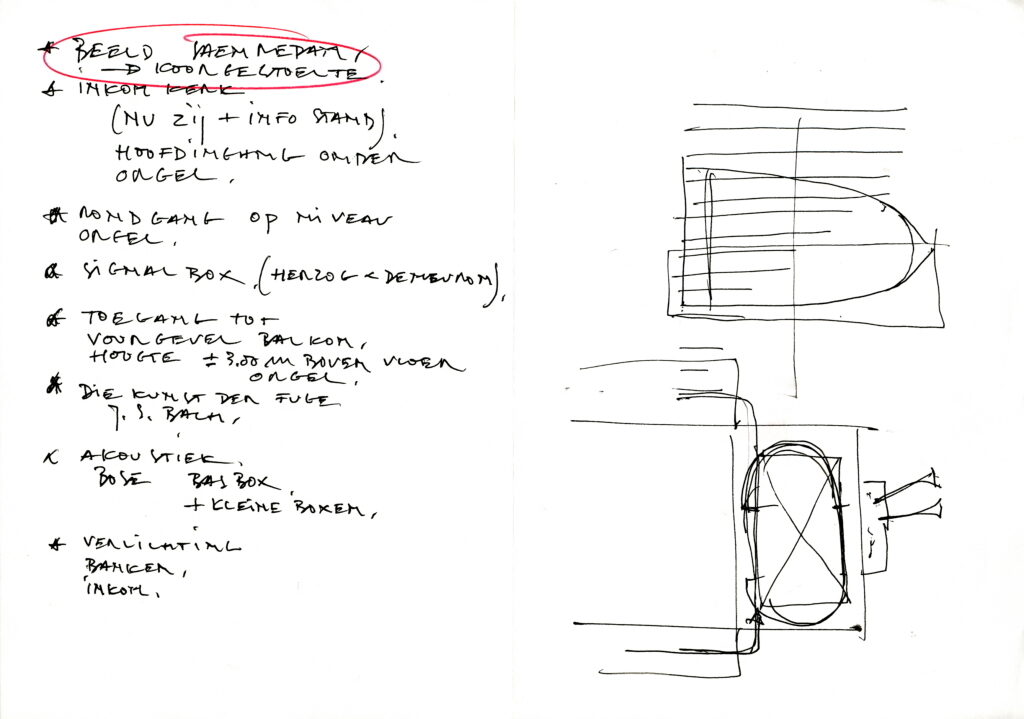 * BEELD SAENREDAM,
→ KOORGESTOELTE.
* INKOM KERK
(NU ZIJ + INFO STAND).
HOOFDINGANG ONDER
ORGEL.
* RONDGANG OP NIVEAU
ORGEL.
* SIGNAL BOX. (HERZOG & DEMEURON).
* TOEGANG TOT
VOORGEVEL BALKON,
HOOGTE ± 3.00 M BOVEN VLOER
ORGEL.
* DIE KUNST DER FUGE
J. S. BACH.
* AKOUSTIEK.
BOSE BASBOX.
+ KLEINE BOXEN.
* VERLICHTING
BANKEN,
INKOM.